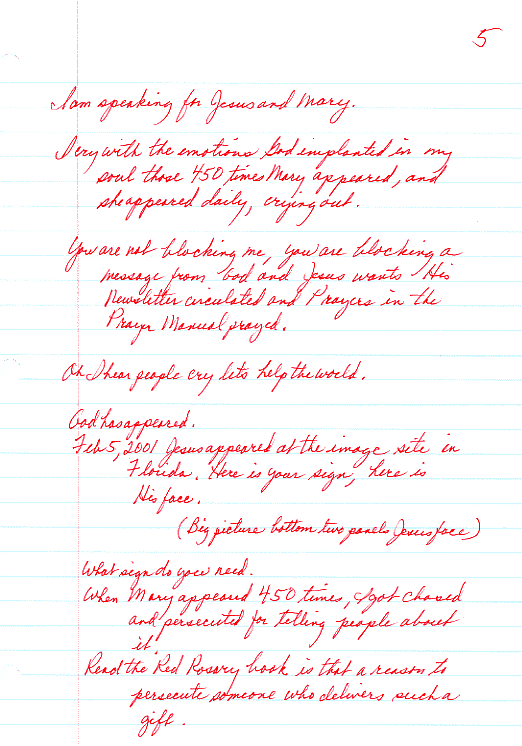 5
I am speaking for Jesus and Mary.
I cry with the emotions God implanted in my
soul those 450 times Mary appeared, and
she appeared daily, crying out.
You are not blocking me, you are blocking a
message from God and Jesus wants His
Newsletter circulated and Prayers in the
Prayer Manual prayed.
Oh I hear people cry lets help the world.
God has appeared.
Feb 5, 2001 Jesus appeared at the image site in
Florida. Here is your sign, here is
His face.
(Big picture bottom two panels Jesus face)
What sign do you need.
When Mary appeared 450 times, I got chased
and persecuted for telling people about
it.
Read the Red Rosary book is that a reason to
persecute someone who delivers such a
gift.